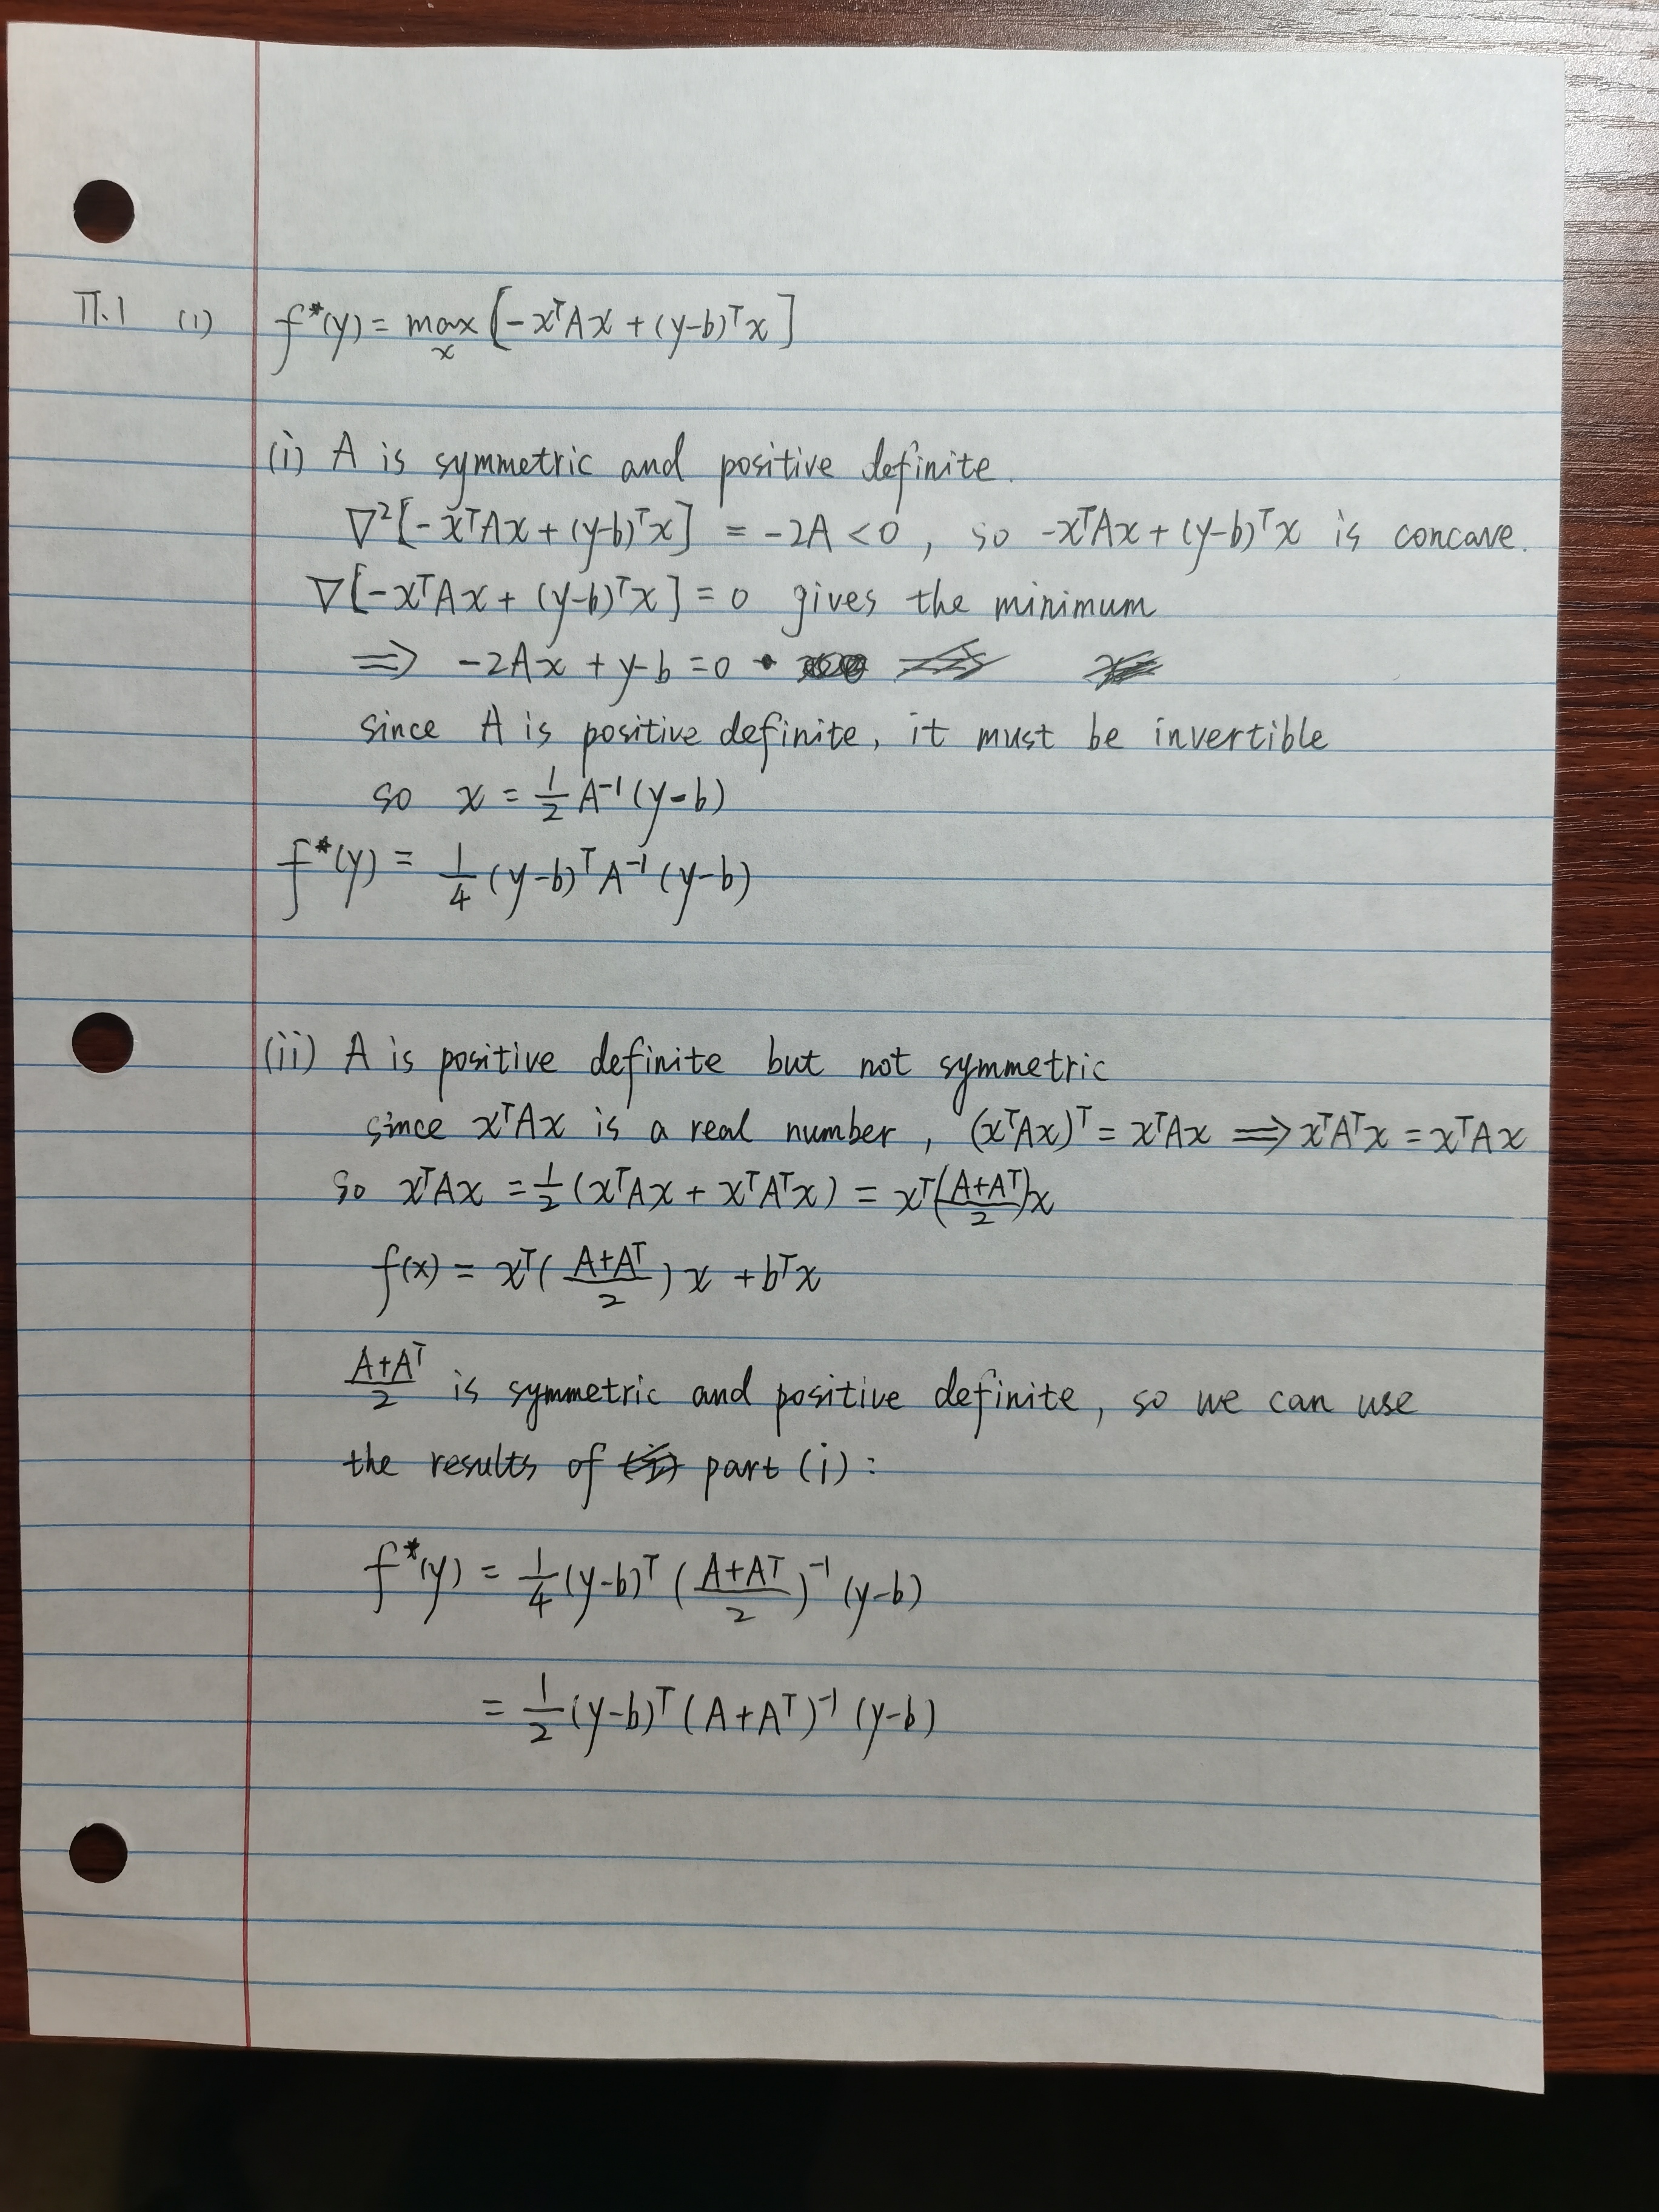 II.1 (1) f*(y) = max_x [-xᵀAx + (y-b)ᵀx]
(i) A is symmetric and positive definite.
∇²[-xᵀAx + (y-b)ᵀx] = -2A < 0, so -xᵀAx + (y-b)ᵀx is concave.
∇[-xᵀAx + (y-b)ᵀx] = 0 gives the minimum
⟹ -2Ax + y-b = 0
since A is positive definite, it must be invertible
so x = 1/2 A⁻¹(y-b)
f*(y) = 1/4 (y-b)ᵀA⁻¹(y-b)
(ii) A is positive definite but not symmetric
since xᵀAx is a real number, (xᵀAx)ᵀ = xᵀAx ⟹ xᵀAᵀx = xᵀAx
so xᵀAx = 1/2 (xᵀAx + xᵀAᵀx) = xᵀ((A+Aᵀ)/2)x
f(x) = xᵀ((A+Aᵀ)/2)x + bᵀx
(A+Aᵀ)/2 is symmetric and positive definite, so we can use
the results of part (i):
f*(y) = 1/4 (y-b)ᵀ((A+Aᵀ)/2)⁻¹(y-b)
= 1/2 (y-b)ᵀ(A+Aᵀ)⁻¹(y-b)